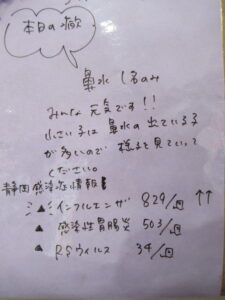 本日の歌
鼻水 しるのみ
みんな元気です!!
小さい子は鼻水の出ている子
が多いので 様子を見ていって
ください。
静岡感染症情報
▲インフルエンザ 829/
▲ 感染性胃腸炎 503/
▲ RSウィルス 34/
↑↑